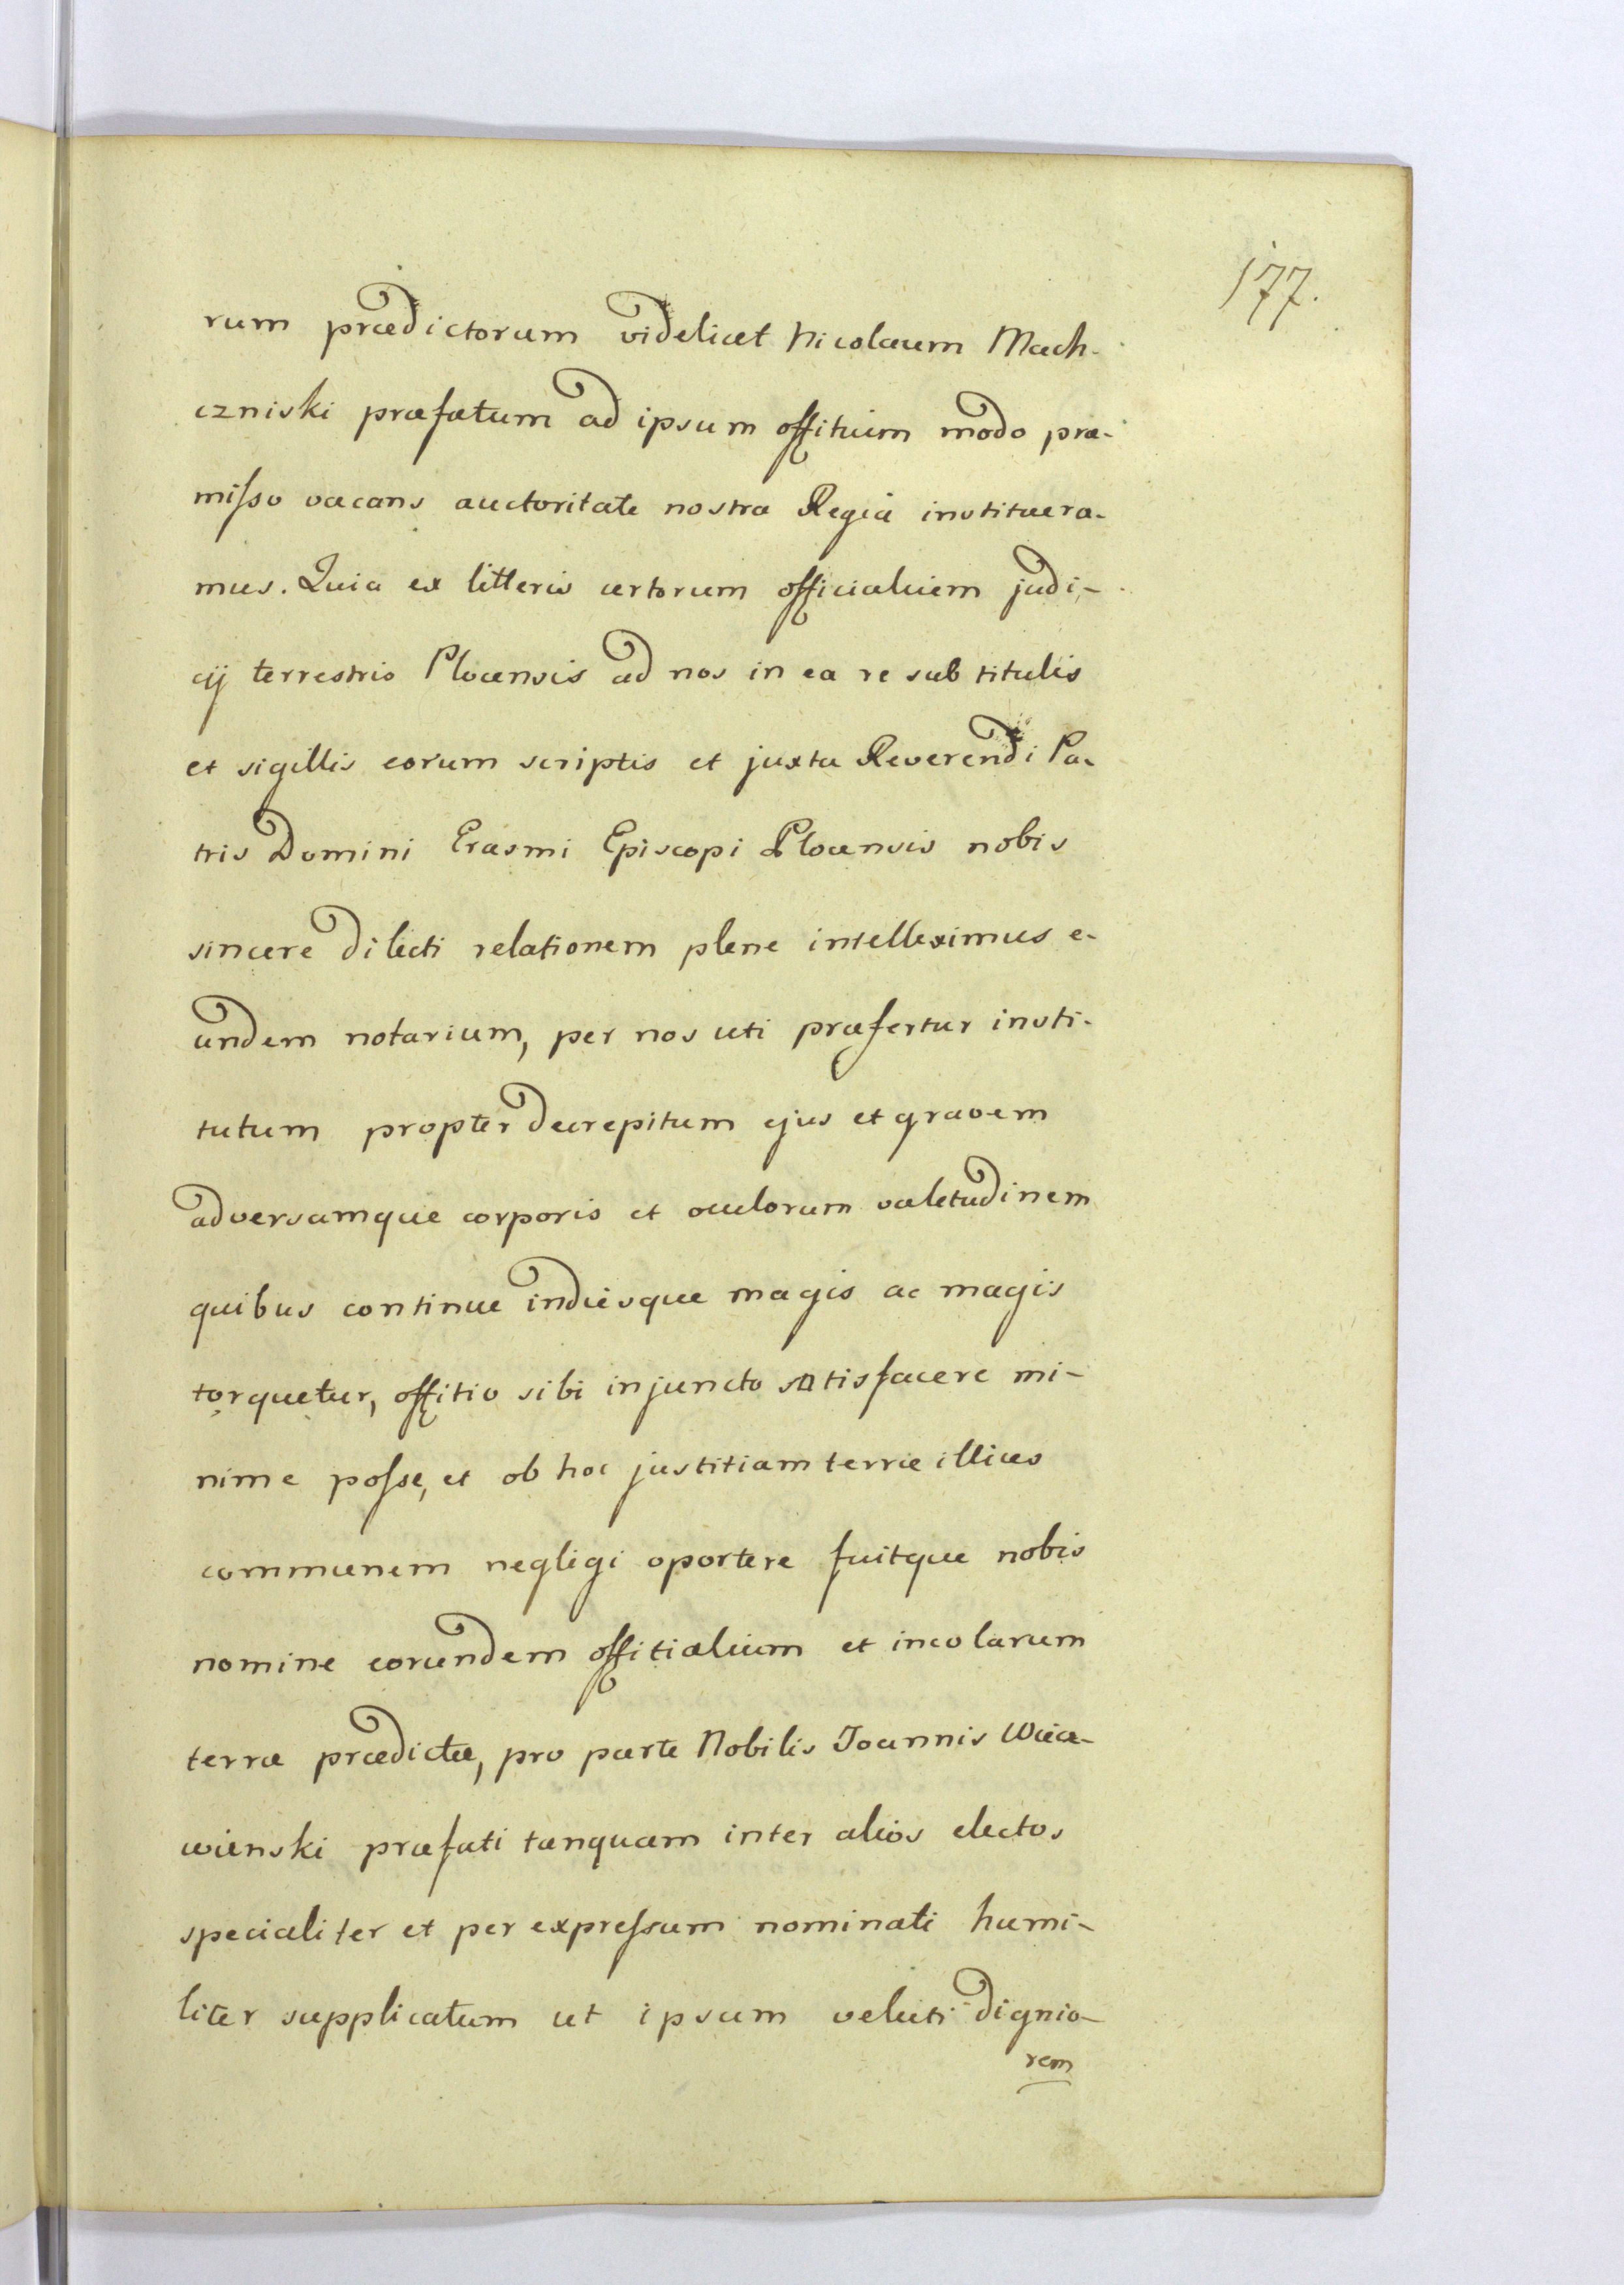 177.
rum prædictorum videlicet Nicolaum Mach-
czniski præfatum ad ipsum offitium modo præ-
misso vacans auctoritate nostra Regia instituera-
mus. Quia ex litteris certorum officialium judi-
cij terrestris Plocensis ad nos in ea re sub titulis
et sigillis eorum scriptis et juxta Reverendi Pa-
tris Domini Erasmi Episcopi Plocensis nobis
sincere dilecti relationem plene intelleximus e-
undem notarium, per nos uti præfertur insti-
tutum propter decrepitum ejus et gravem
adversamque corporis et oculorum valetudinem
quibus continue indiesque magis ac magis
torquetur, offitio sibi injuncto satisfacere mi-
nime posse, et ob hoc justitiam terræ illius
communem negligi oportere fuitque nobis
nomine eorundem offitialium et incolarum
terræ prædictæ, pro parte Nobilis Joannis
wienski præfati tanquam inter alios electos
specialiter et per expressum nominati humi-
liter supplicatum ut ipsum veluti dignio-
rem